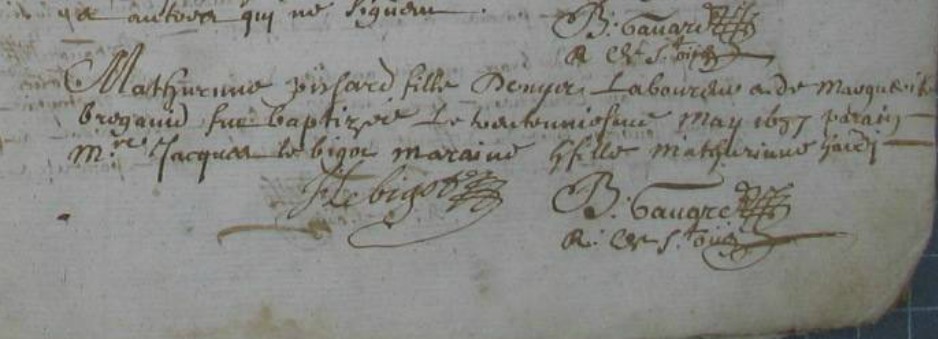 et autres qui ne signent .
B. Gaugré
R. de St ouen
Mathurinne pissard fille Denys Laboureur & de Marguerite
bregaud fut baptizée Le vent uniesme May 1637 parain
Mre Jacques le bigot maraine hfille Mathurinne hardi
J Le bigot
B. Gaugre
R. de St ouen